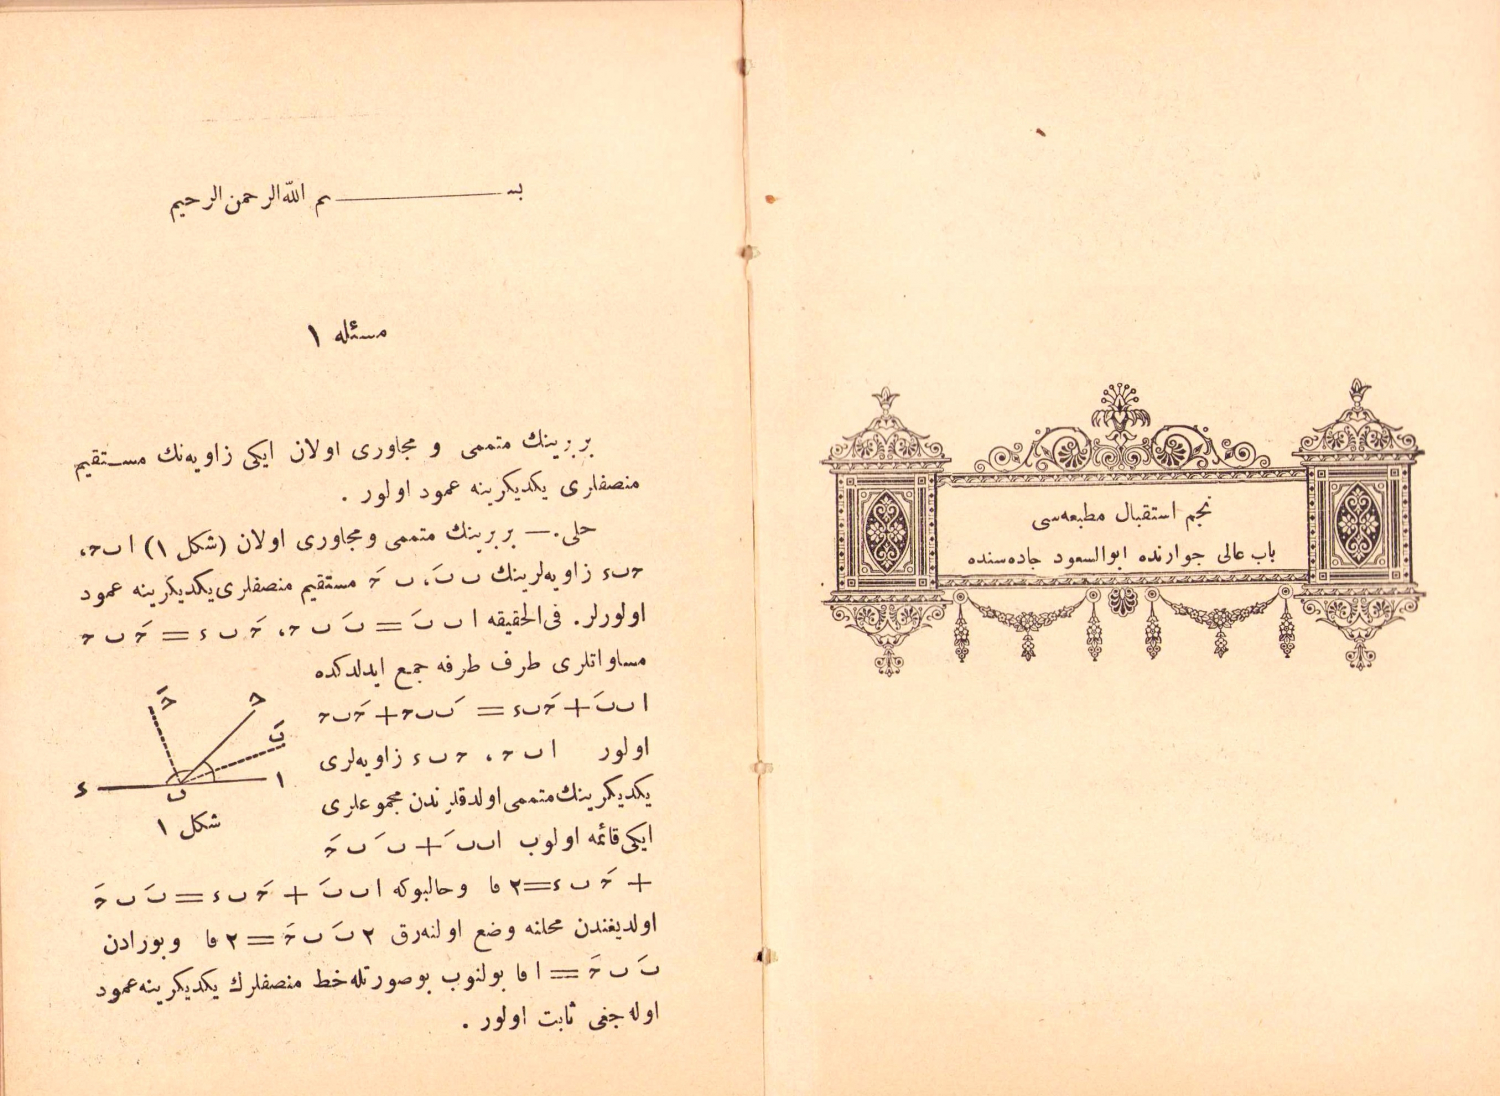 نجم استقبال مطبعه‌سی
باب عالی جوارنده ابوالسعود جاده‌سنده
بسم الله الرحمن الرحیم
مسئله ١
بربرینك متممی و مجاوری اولان ایکی زاویه‌نك مستقیم
منصفلری یکدیکرینه عمود اولور .
حلی . — بربرینك متممی و مجاوری اولان (شکل ١) ا ٮ ﺣ،
ﺣ ٮ ء زاویه‌لرینك ٮ ٮَ، ٮ ﺣَ مستقیم منصفلری یکدیکرینه عمود
اولورلر. فی‌الحقیقه ا ٮ ٮَ = ٮَ ٮ ﺣ، ﺣَ ٮ ء = ﺣَ ٮ ﺣ
مساواتلری طرف طرفه جمع ایدلدکده
ا ٮ ٮَ + ﺣَ ٮ ء = ٮَ ٮ ﺣ + ﺣَ ٮ ﺣ
اولور ا ٮ ﺣ ، ﺣ ٮ ء زاویه‌لری
یکدیکرینك متممی اولدقلرندن مجموعلری
ایکی قائمه اولوب ا ٮ ٮَ + ٮَ ٮ ﺣَ
+ ﺣَ ٮ ء = ٢ ٯا وحالبوکه ا ٮ ٮَ + ﺣَ ٮ ء = ٮَ ٮ ﺣَ
اولدیغندن محلنه وضع اولنه‌رق ٢ ٮَ ٮ ﺣَ = ٢ ٯا وبورادن
ٮَ ٮ ﺣَ = ١ ٯا بولنوب بوصورتله خط منصفلرك یکدیکرینه عمود
اوله‌جغی ثابت اولور .
ﺣَ
ﺣ
ٮَ
ا
ٮ
ء
شکل ١